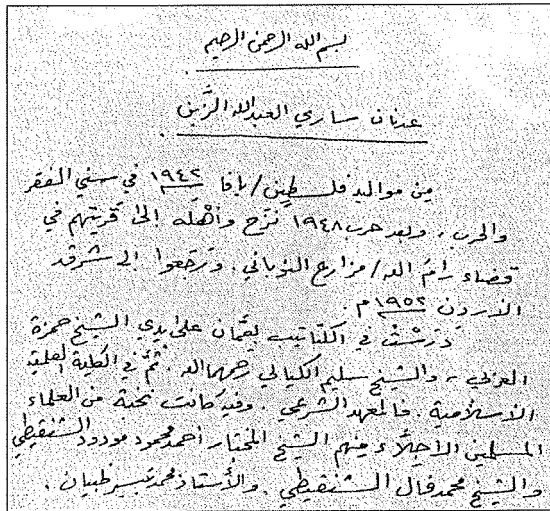 بسم الله الرحمن الرحيم
عدنان ساري العبدالله الزَّبن
من مواليد فلسطين/يافا ١٩٤٢ في سني الفقر
والحرب، وبعد حرب ١٩٤٨ نزح وأهله إلى قريتهم في
قضاء رام الله/مزارع النوباني. و إلى شرق
الأردن ١٩٥٢م.
دَرَسْتُ في الكتاتيب بعمّان على يدي الشيخ حمزة
العربي، والشيخ سليم الكيالي رحمهما الله. ثمّ في الكلية العلمية
الإسلامية. فالمعهد الشرعي. وفيه كانت نخبة من العلماء
المسلمين الأجلّاء منهم الشيخ المختار أحمد محمود مودود الشنقيطي
والشيخ محمد فال الشنقيطي. والأستاذ محمد تيسير ظبيان.